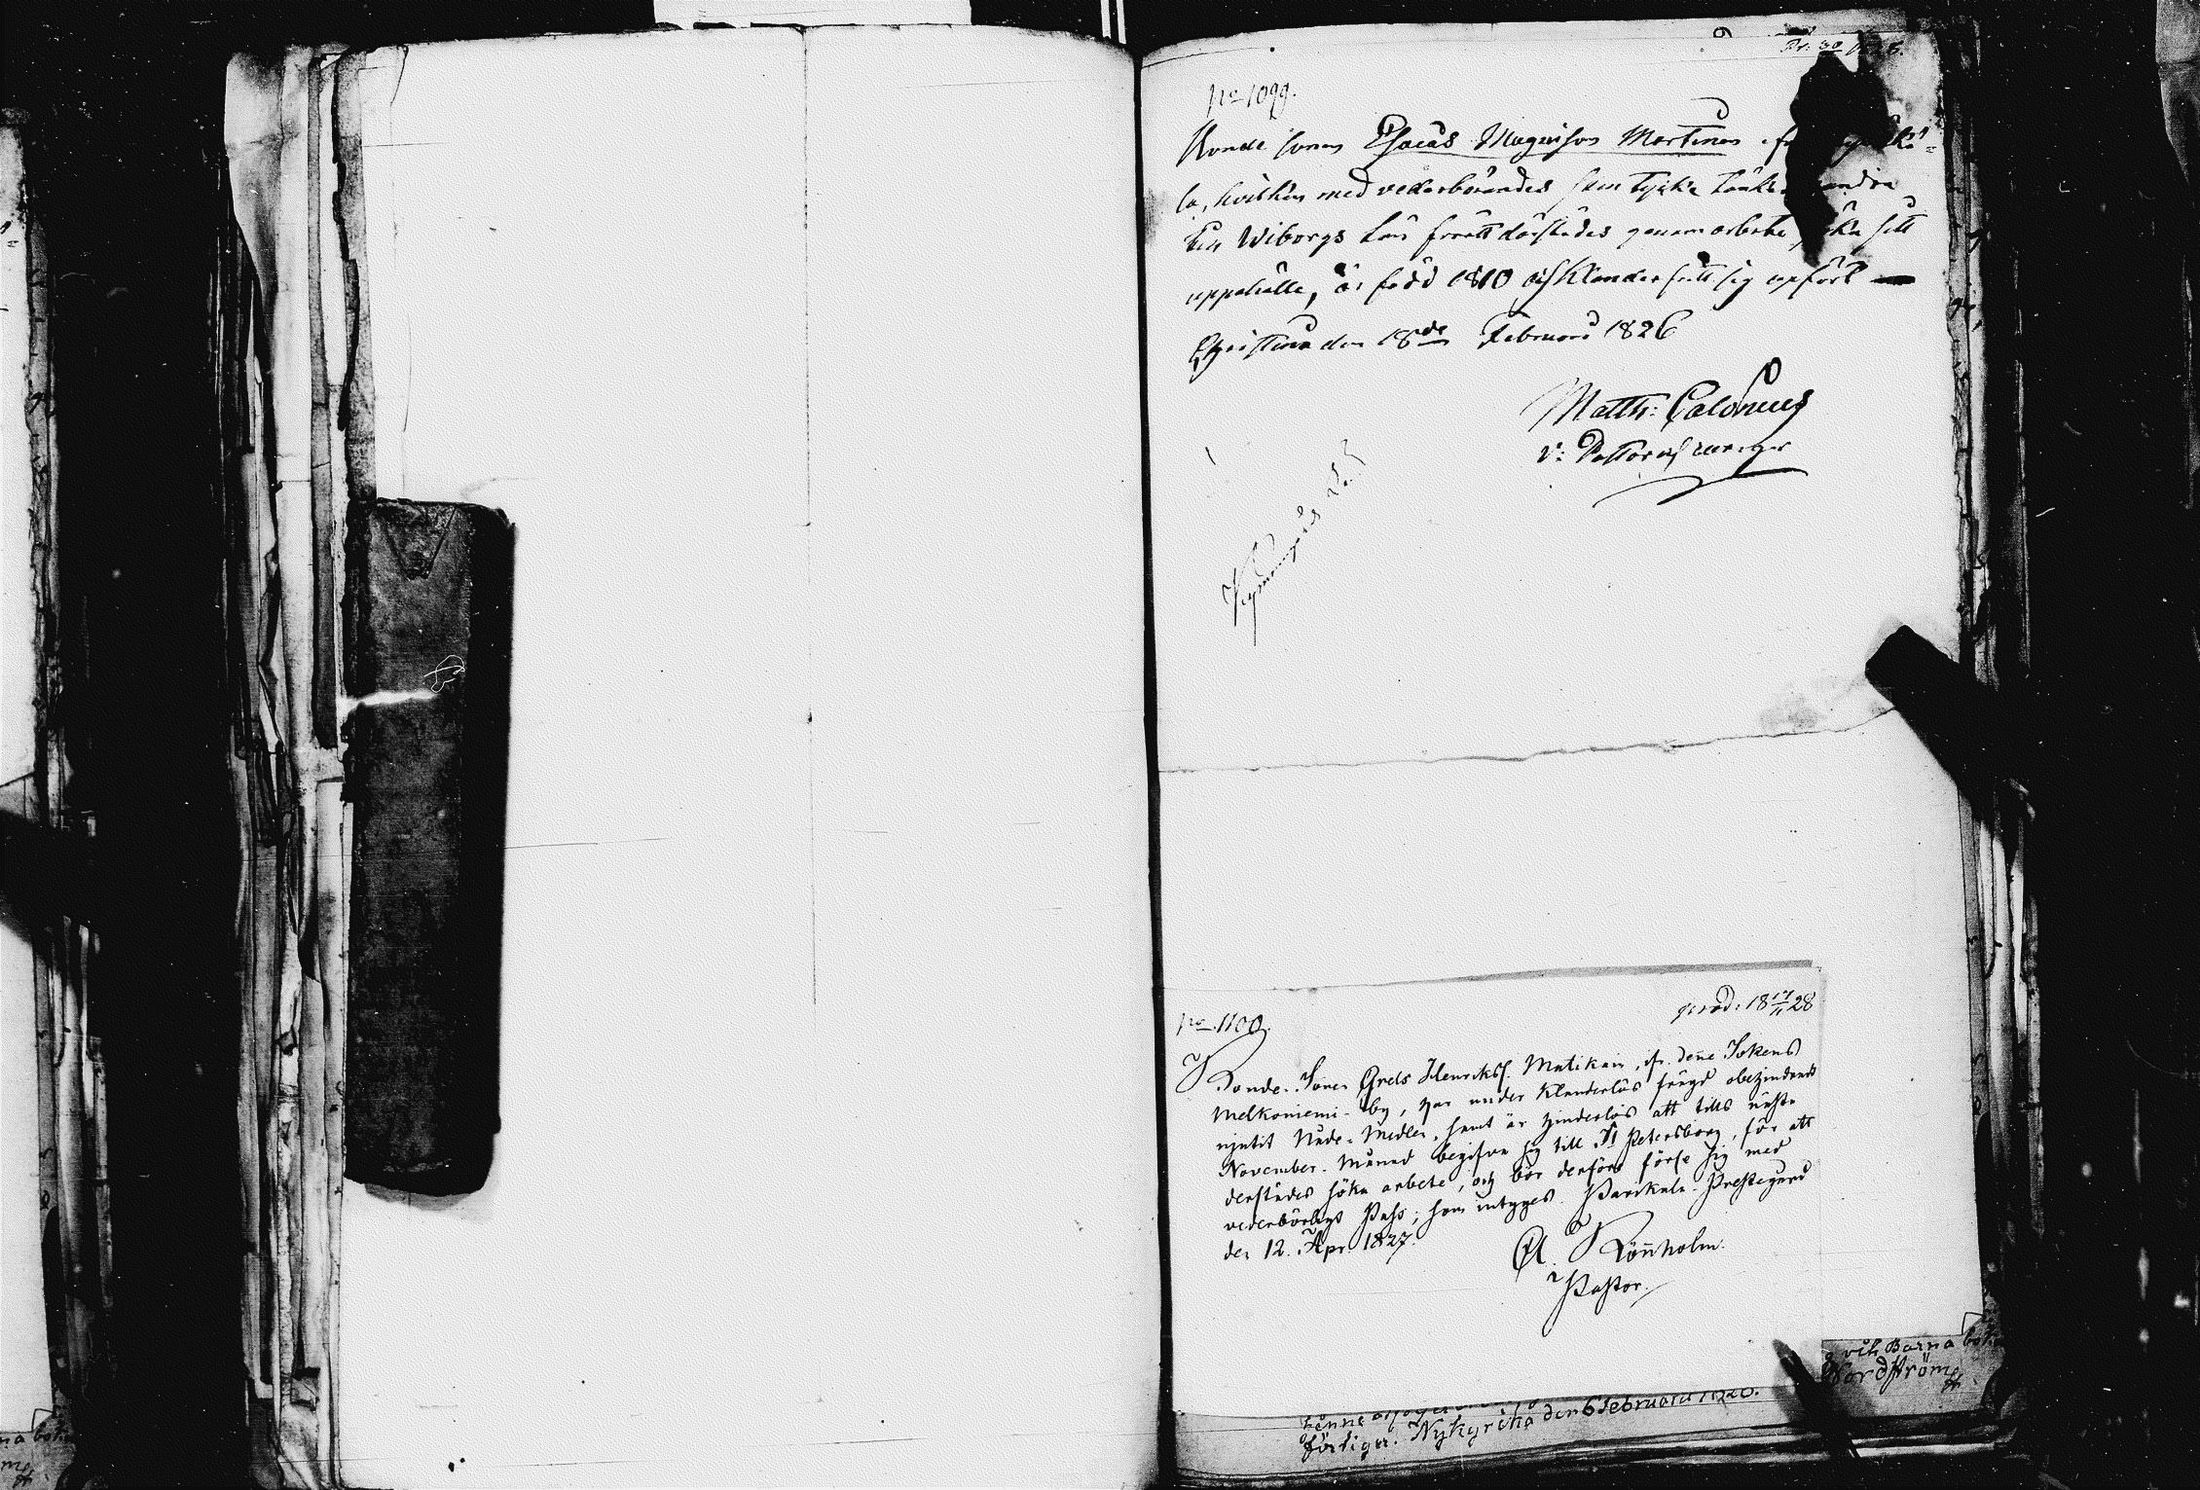 No 1099.
Bonde sonen Esaias Magnison Martinen
la, hvilken med vederbörandes samtycke tänker
till Wiborgs Län för att därstädes genom arbete söka sitt
uppehälle, är född 1810 och klanderfritt sig upfört
Christina den 18de Februarii 1826
Matth: Calonius
v: Pastor
No 1100.
prod: 18 17/11 28
Bonde-Sonen Grels Henrikss. Matikain, ifr. denne Sokens
Melkoniemi-by, har under klanderlös frägd obehindradt
njutit Nåde-Medlen, samt är hinderlös att tills nästa
November-Månad begifva sig till St Petersborg, för att
derstädes söka arbete, och bör derföre förse sig med
vederbörligt Pass; som intygas. Parikala Prestegård
den 12. Apr. 1827.
Lönnholm.
Pastor.
vih Barna
Nordström
förtiger. Nykyrcka den 6 Februarii